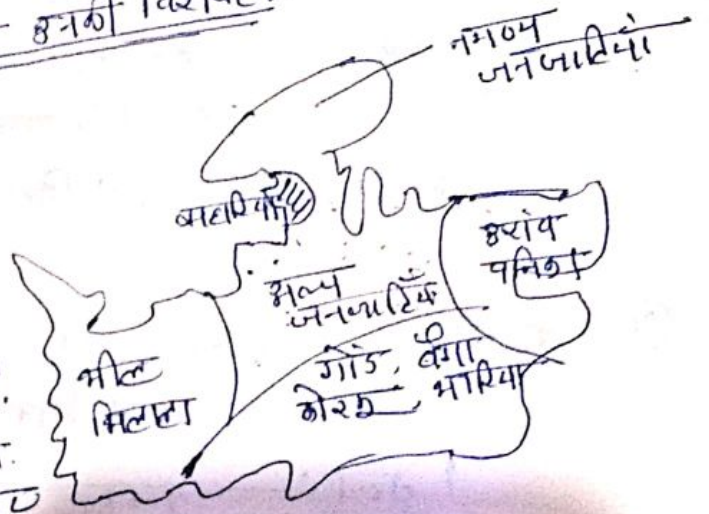 उनकी
नगण्य
जनजातियाँ
सहारिया
उरांव
पनिका
अल्प
जनजातियाँ
भील
भिलाला
गोंड, बैगा
कोरकू, भारिया